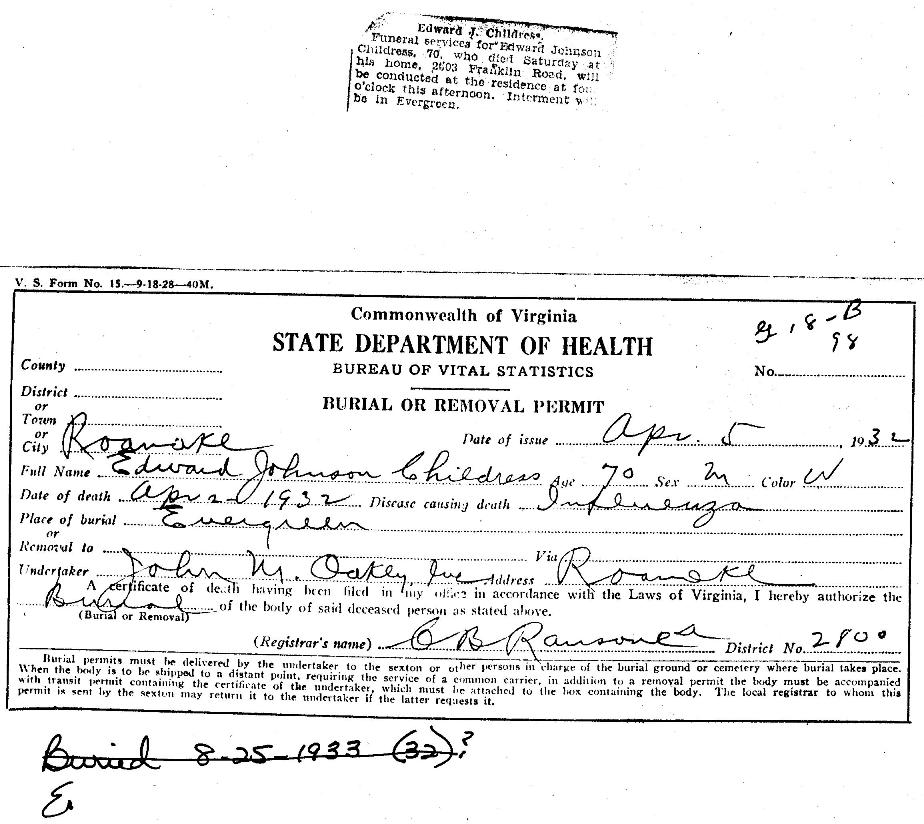 Edward J. Childress.
Funeral services for Edward Johnson
Childress, 70, who died Saturday at
his home, 2603 Franklin Road, will
be conducted at the residence at fou
o'clock this afternoon. Interment w
be in Evergreen.
V. S. Form No. 15.—9-18-28—40M.
Commonwealth of Virginia
STATE DEPARTMENT OF HEALTH
BUREAU OF VITAL STATISTICS
BURIAL OR REMOVAL PERMIT
8-B
98
No.
County
District
or
Town
or
City Roanoke
Date of issue Apr. 5, 1932
Full Name Edward Johnson Childress Age 70 Sex M Color W
Date of death Apr 2 - 1932 Disease causing death Influenza
Place of burial Evergreen
or
Removal to Via
Undertaker John M. Oakey, Inc Address Roanoke
A certificate of death having been filed in my office in accordance with the Laws of Virginia, I hereby authorize the
Burial of the body of said deceased person as stated above.
(Burial or Removal)
(Registrar's name) C B Ransone District No. 2800
Burial permits must be delivered by the undertaker to the sexton or other persons in charge of the burial ground or cemetery where burial takes place.
When the body is to be shipped to a distant point, requiring the service of a common carrier, in addition to a removal permit the body must be accompanied
with transit permit containing the certificate of the undertaker, which must be attached to the box containing the body. The local registrar to whom this
permit is sent by the sexton may return it to the undertaker if the latter requests it.
Buried 8-25-1933 (32)?